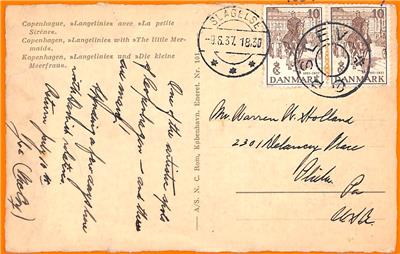 Copenhague, »Langelinie« avec »La petite
Sirène«.
Copenhagen, »Langelinie« with »The little Mer-
maid«.
Kopenhagen, »Langelinie« und »Die kleine
Meerfrau«.
One of the artistic spots
of Copenhagen — and there
are many!
Spending a few days here
with Danish relatives.
Return July 10
A/S. N. C. Rom, København, Eneret. Nr.
SLAGELSE
-9.6.37. 18.30
10
DANMARK
10
DANMARK
SLEV
Mr. Warren W. Holland
2301 Delancey Place
Phila. Pa
USA.